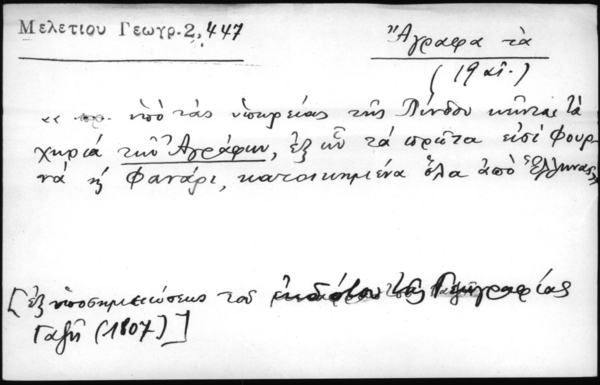 Μελετίου Γεωγρ. 2, 447
Ἄγραφα τὰ
(19 αἰ.)
« ὑπὸ τὰς ὑπωρείας τῆς Πίνδου κεῖνται τὰ
χωριά τῶν Ἀγράφων, ἐξ ὧν τὰ πρῶτα εἰσὶ Φουρ-
νά ἢ Φανάρι, κατοικημένα ὅλα ἀπὸ Ἕλληνας»
[ἐξ ὑποσημειώσεως τοῦ ἐκδότου τῆς Γεωγραφίας
Γαζῆ (1807)]